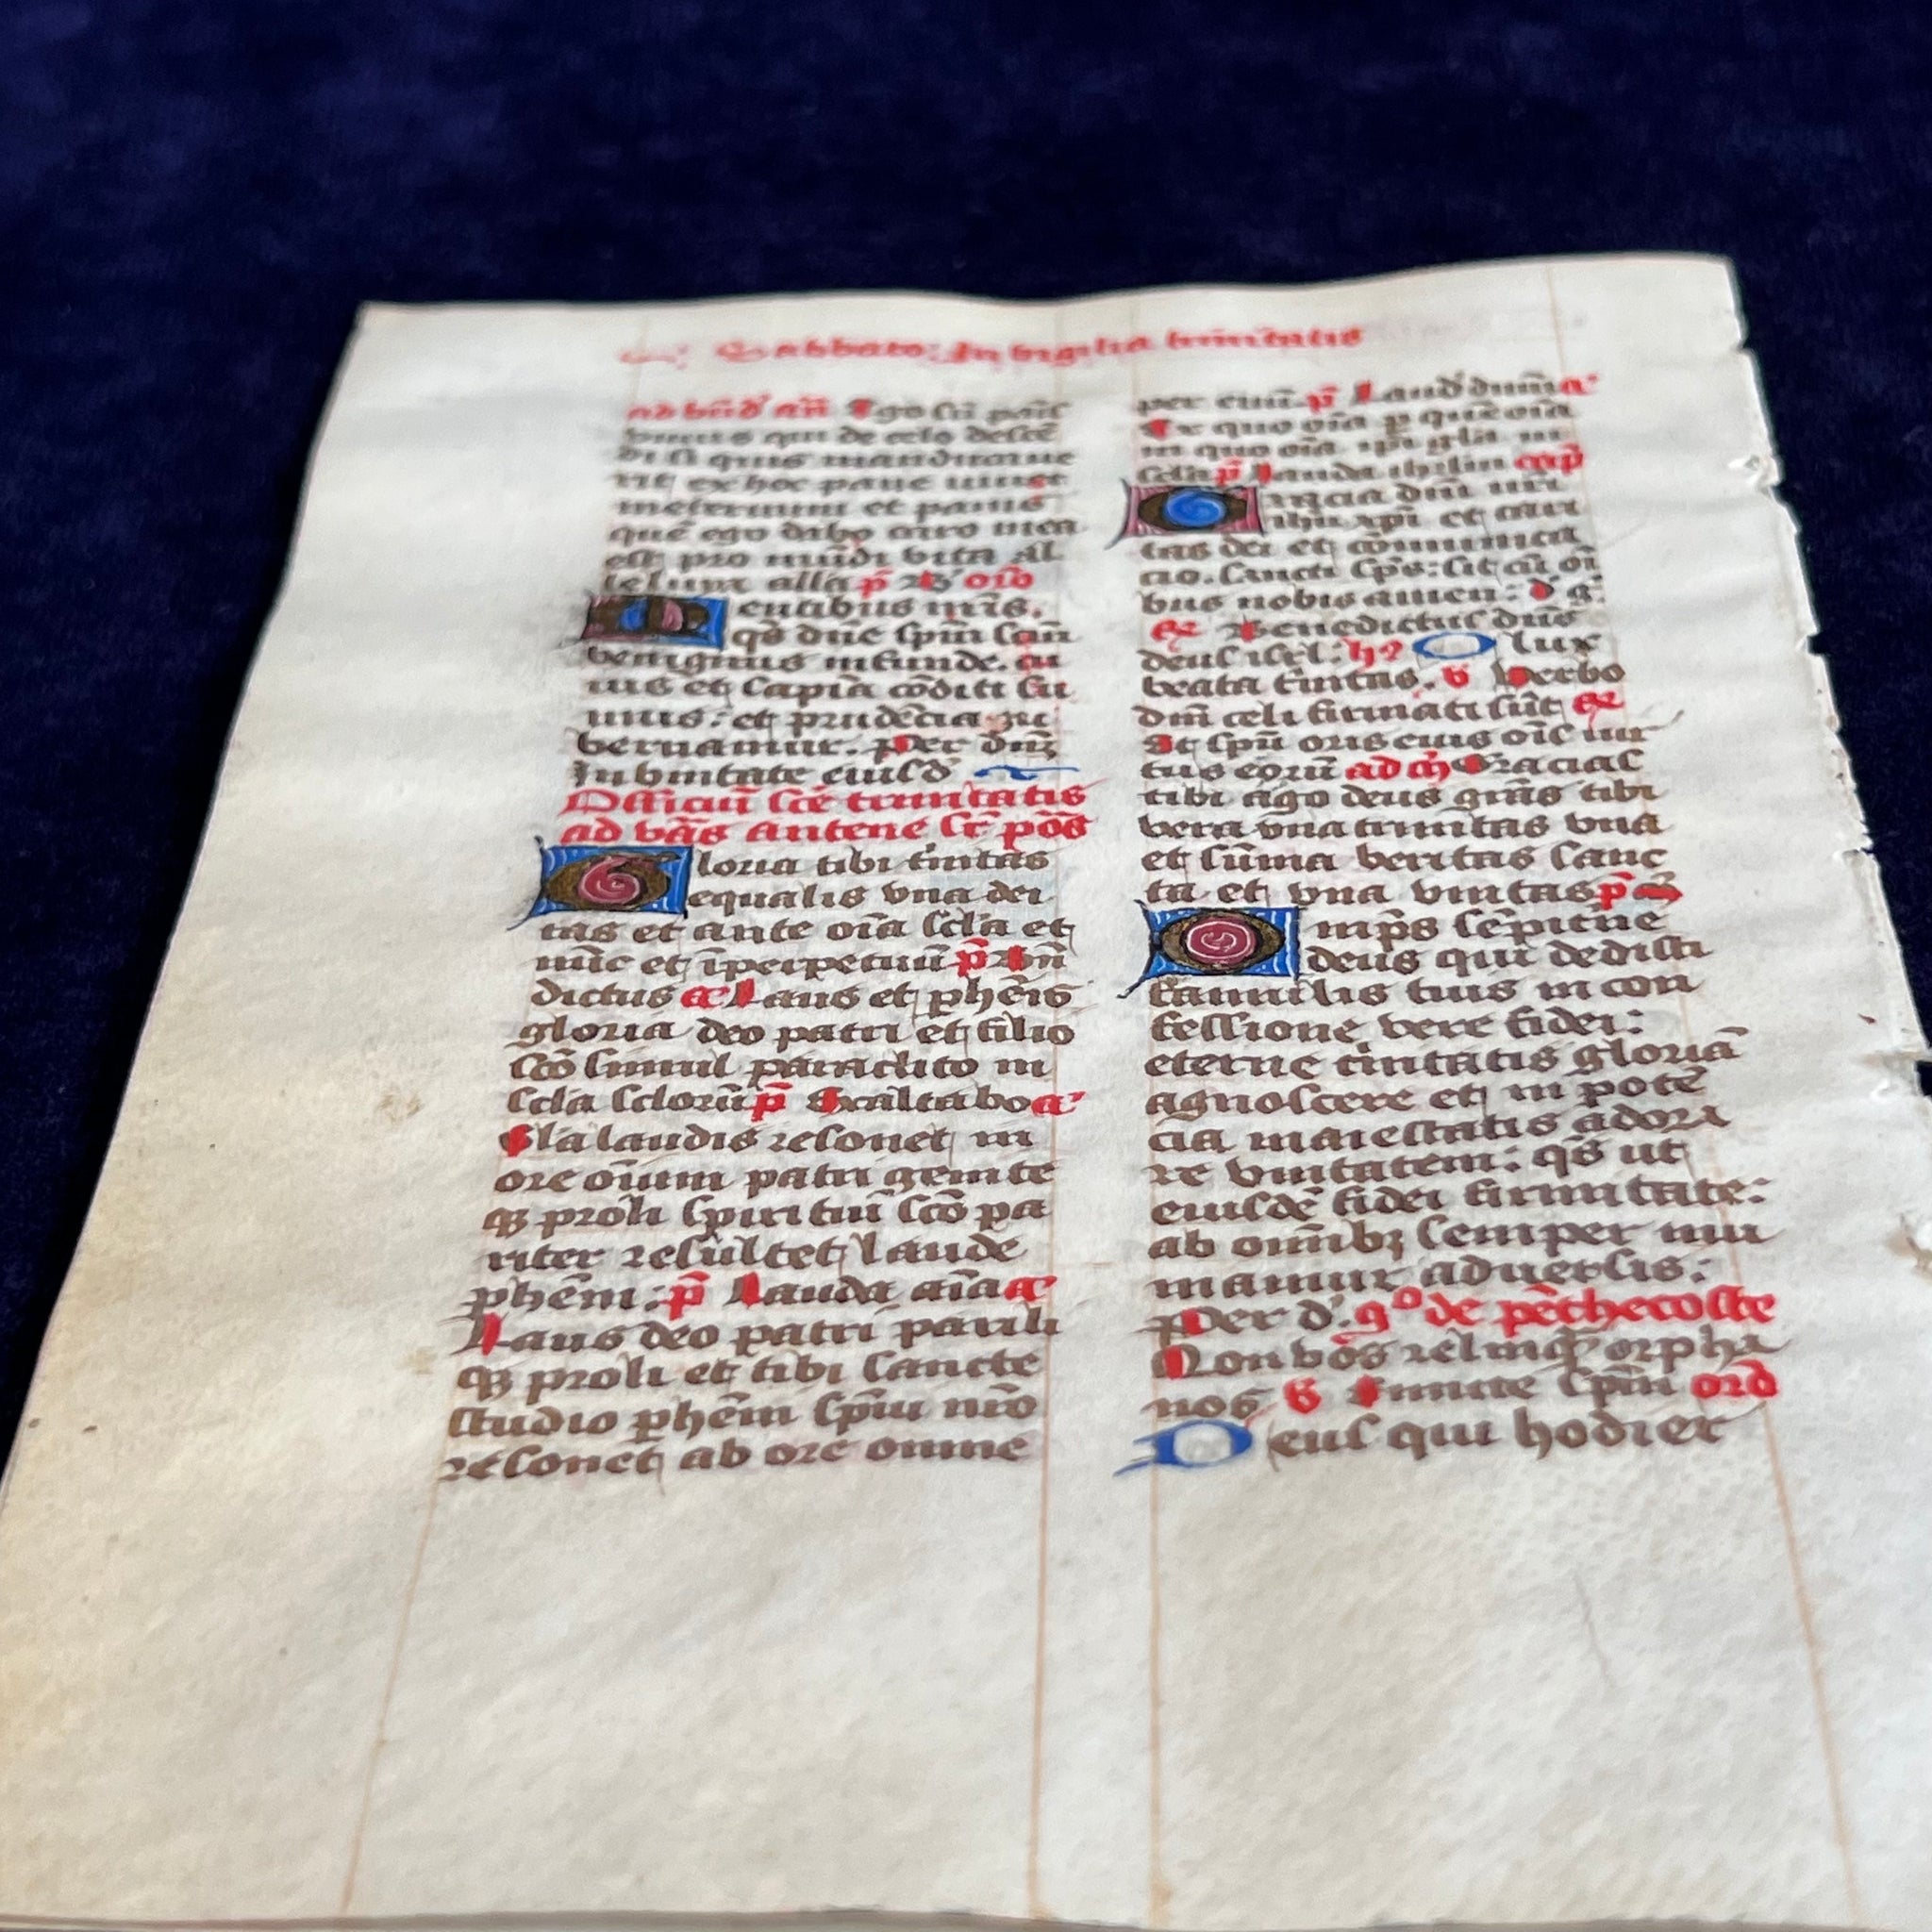 Sabbato: In vigilia trinitatis
ad bn̄d' an̄ Ego sū panis
viuus qui de celo descē
di si quis manducaue
rit ex hoc pane uiuet
ineternum et panis
quē ego dabo caro mea
est pro mūdi vita al
leluia alla p̄ orō
Mentibus nr̄is.
qs̄ dn̄e spm̄ scm̄
benignus infunde. cu
ius et sapiā cōditi su
mus: et prudēcia gu
bernamur. Per dn̄m
In vnitate eiusd'
Officiū scē trinitatis
ad vās antene sr̄ pōs
Gloria tibi t̄nitas
equalis vna dei
tas et ante oīa scl̄a et
nūc et īperpetuū p̄ Bn̄
dictus a Laus et phēis
gloria deo patri et filio
scō simul paraclito in
scl̄a scl̄orū p̄ Exaltabo a
Gl̄a laudis resonet in
ore oīum patri genite
qꝫ proli spiritui scō pa
riter resultet laude
phēm: p̄ Lauda aīa a
Laus deo patri parili
qꝫ proli et tibi sancte
studio ꝑhēm spm̄ nr̄o
resonet ab ore omne
per euū p̄ Laud' dnm̄ a
Ex quo oīa ꝑ quē oīa
in quo oīa ipi gl̄a in
scl̄a p̄ Lauda ihrlm cap̄
Gracia dn̄i nri
ihū xp̄i et cari
tas dei et cōmunica
cio. sancti spūs: sit cū oī
bus nobis amen: d' g:
Benedictus dn̄s
deus isrl: hy O lux
beata t̄nitas. v Verbo
dn̄i celi firmati sūt
Et spū oris eius oīs uir
tus eorū ad m̄ Gracias
tibi ago deus gr̄as tibi
vera vna trinitas vna
et sūma veritas sanc
ta et vna vnitas p̄
Omps sēpitne
deus qui dedisti
famulis tuis in con
fessione vere fidei:
eterne t̄nitatis gloriā
agnoscere et in potē
cia maiestatis adora
re vnitatem: qs̄ ut
eiusdē fidei firmitate:
ab omībꝫ semper mu
niamur aduersis:
Per d'. 9º de pēthecoste
Non vōs relinqꝫ orpha
nos v Emitte spm̄ orō
Deus qui hodier